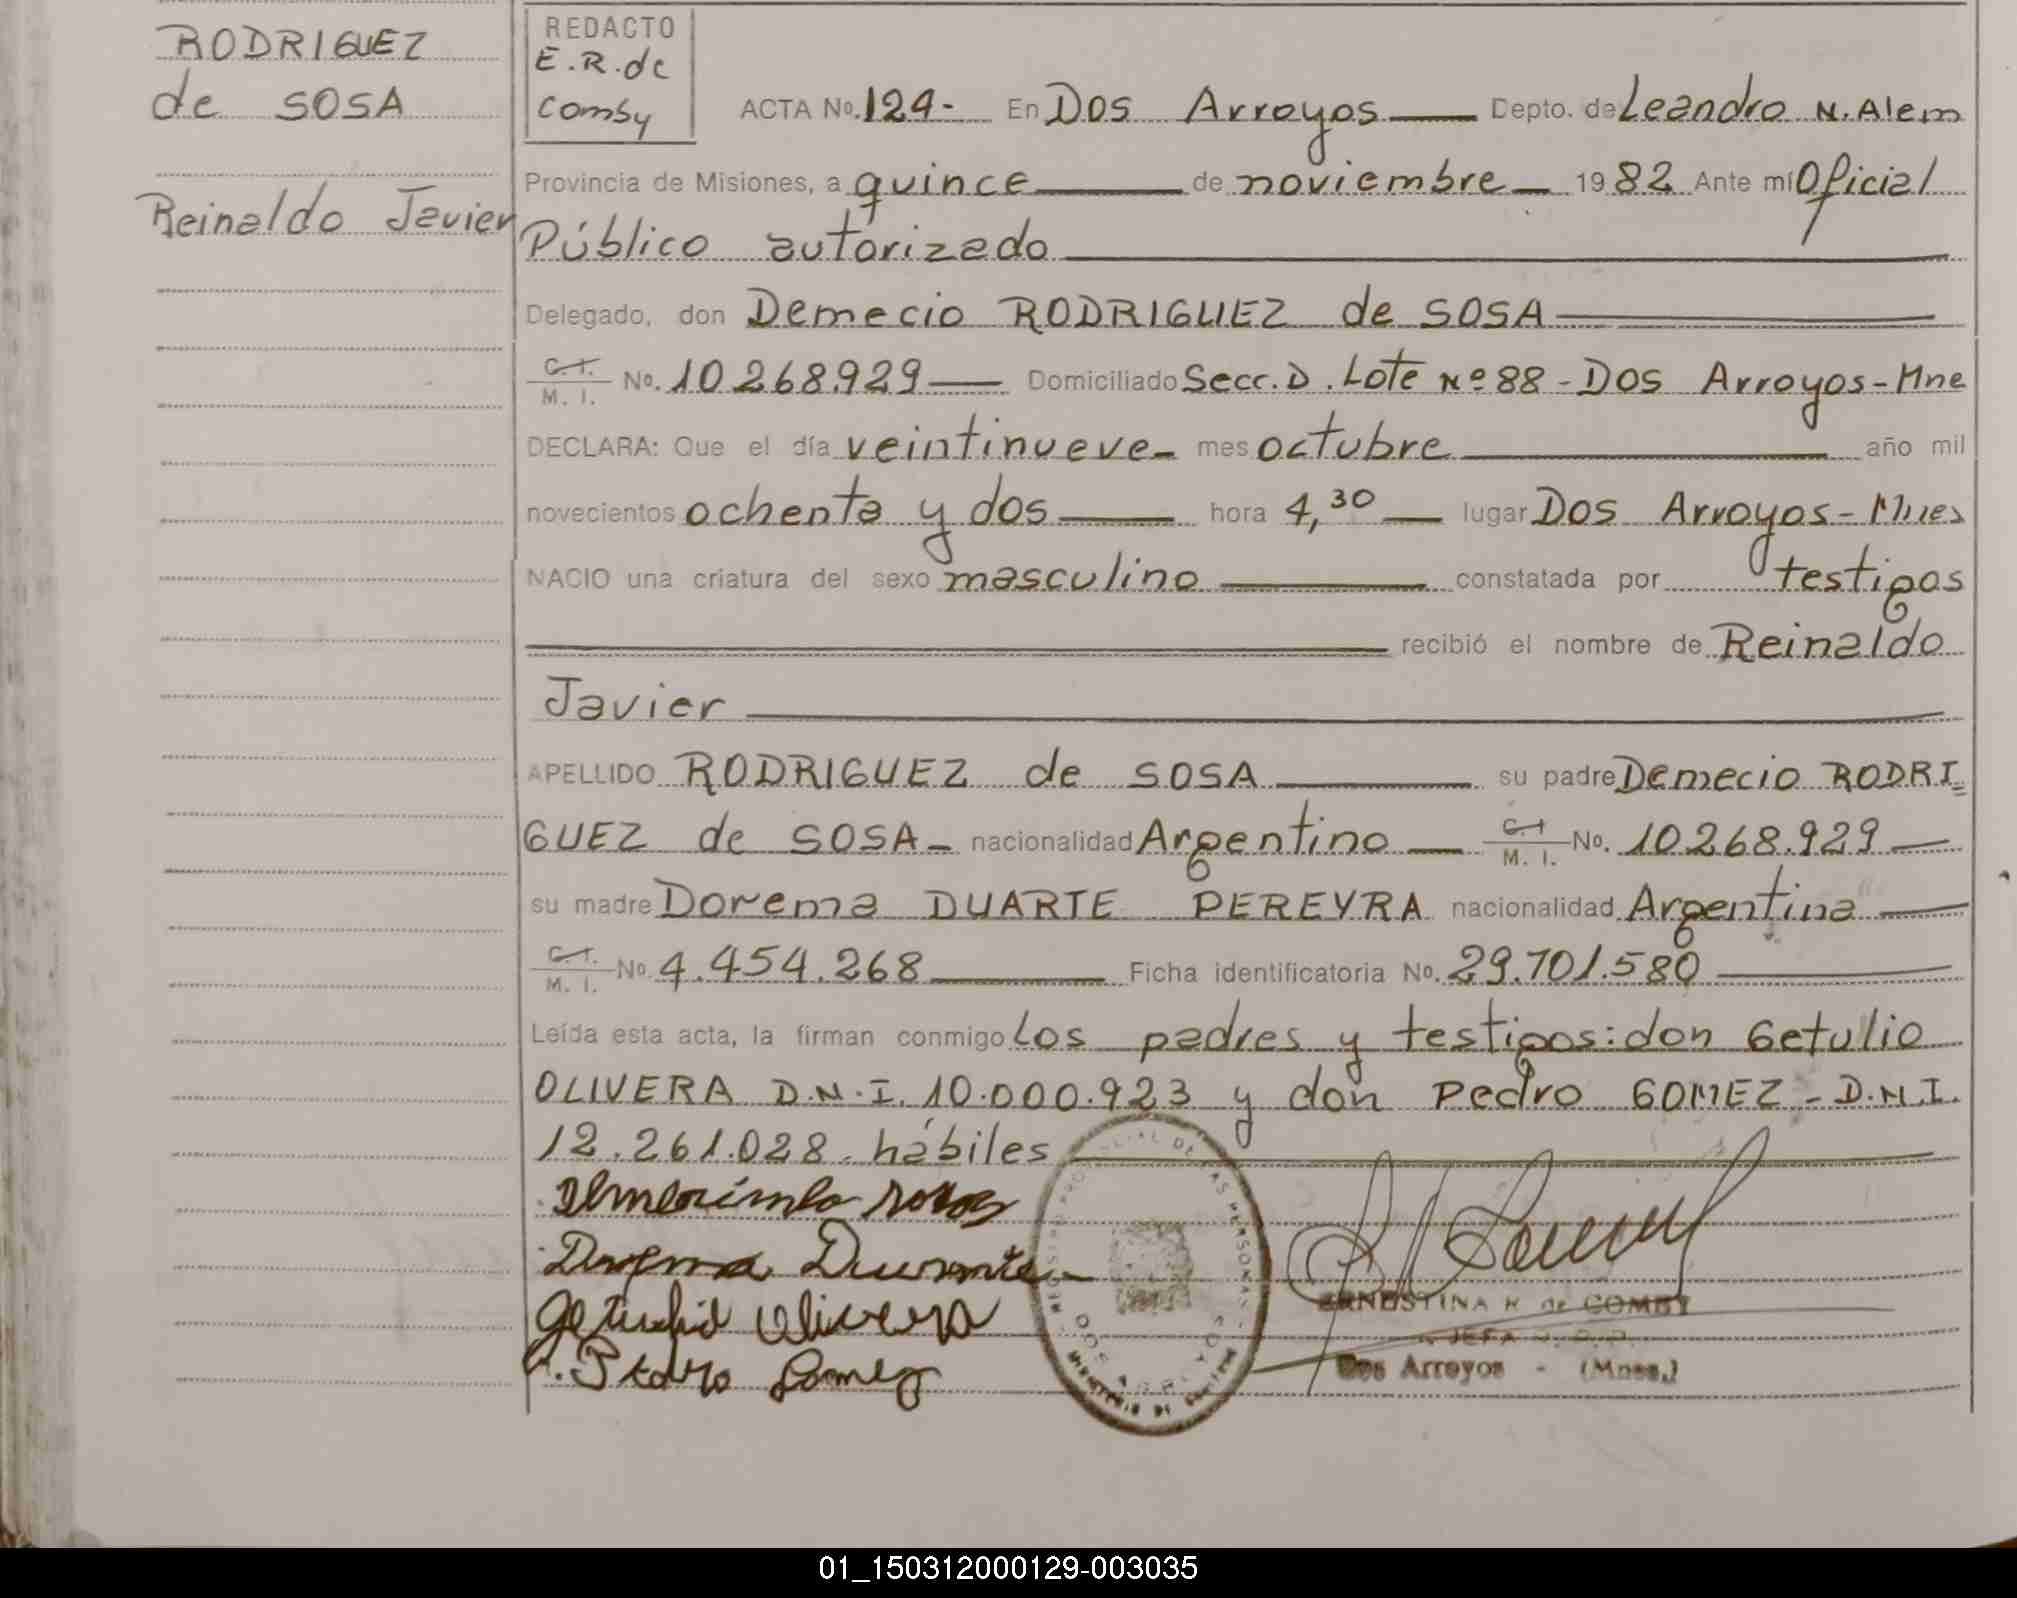 RODRIGUEZ
de SOSA
Reinaldo Javier
REDACTO
E.R.de
Comby
ACTA No. 129- En Dos Arroyos Depto. de Leandro N. Alem
Provincia de Misiones, a quince de noviembre 1982 Ante mí Oficial
Público autorizado
Delegado, don Demecio RODRIGUEZ de SOSA
C.I. M. I. No. 10.268.929 Domiciliado Secc. D. Lote Nº 88 - Dos Arroyos - Mne
DECLARA: Que el día veintinueve mes octubre año mil
novecientos ochenta y dos hora 4,30 lugar Dos Arroyos - Mnes
NACIO una criatura del sexo masculino constatada por testigos
recibió el nombre de Reinaldo
Javier
APELLIDO RODRIGUEZ de SOSA su padre Demecio RODRI=
GUEZ de SOSA nacionalidad Argentino C.I M. I. No. 10.268.929
su madre Dorema DUARTE PEREYRA nacionalidad Argentina
C.I. M. I. No. 4.454.268 Ficha identificatoria No. 29.701.580
Leída esta acta, la firman conmigo Los padres y testigos: don Getulio
OLIVERA D.N.I. 10.000.923 y don Pedro GOMEZ - D.N.I.
12.261.028. hábiles
Dorema Duarte
Getulio Olivera
Pedro Gomez
ERNESTINA R. de COMBY
JEFA
Dos Arroyos - (Mnes.)
01_150312000129-003035